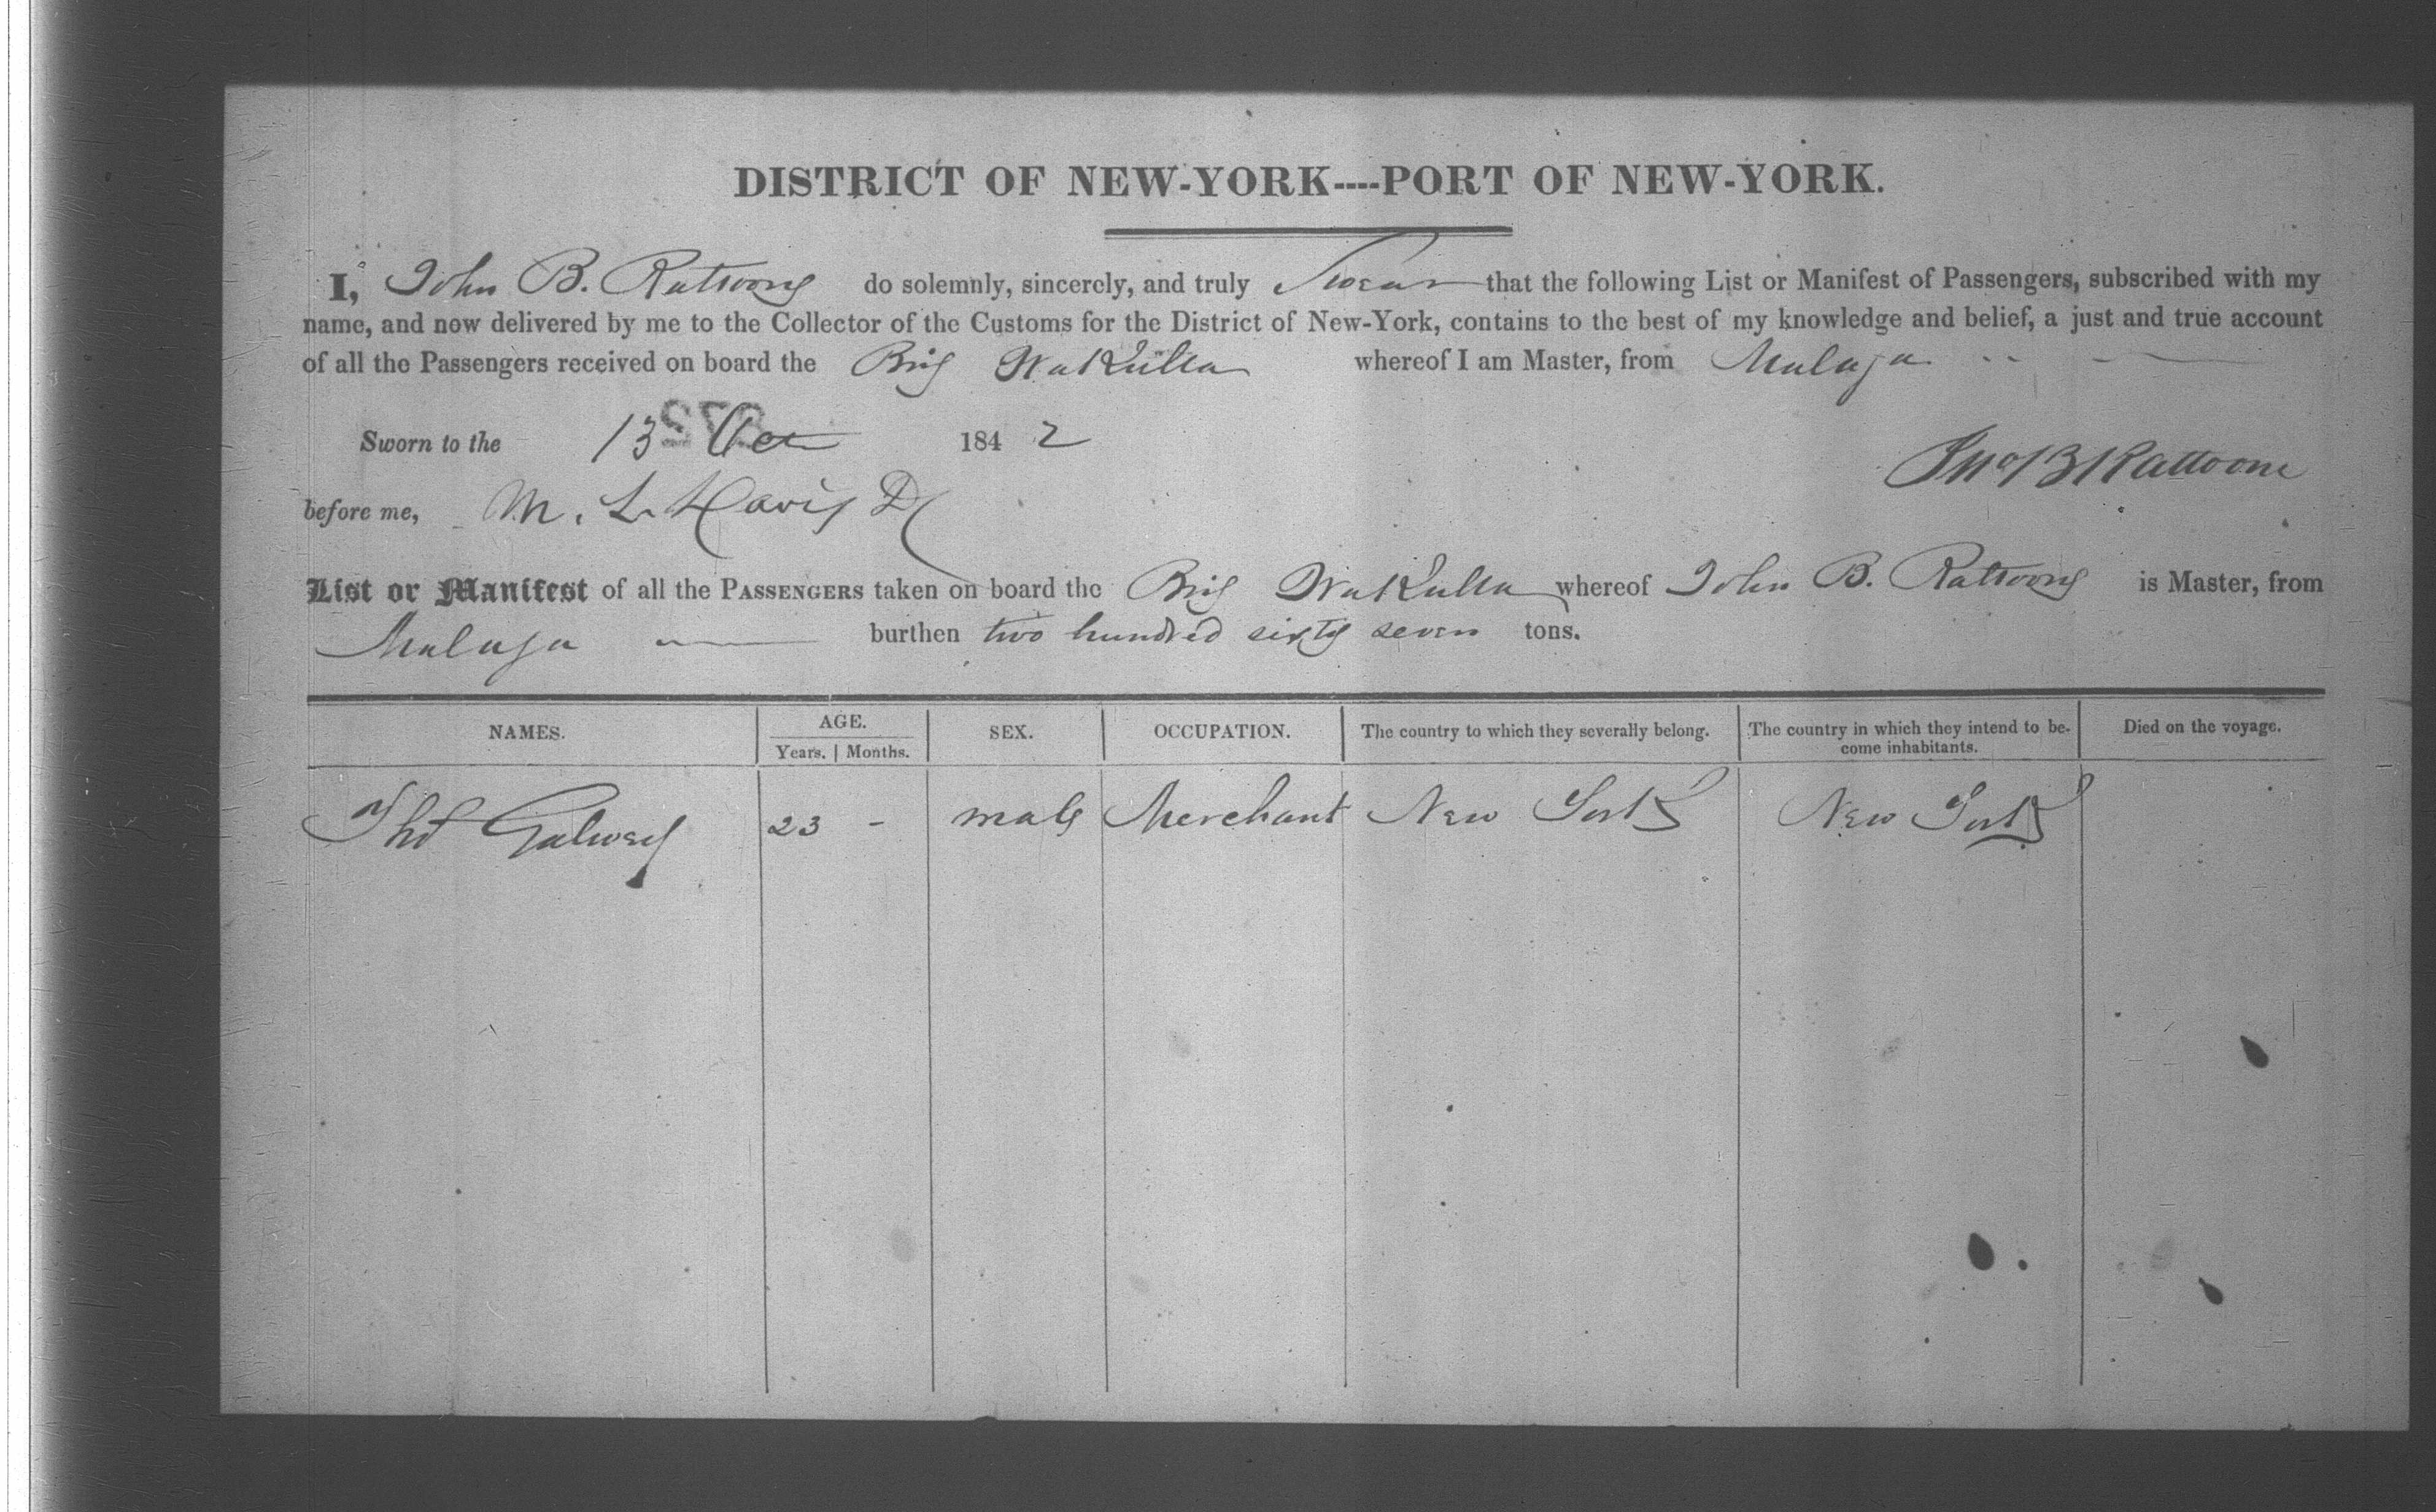 DISTRICT OF NEW-YORK----PORT OF NEW-YORK.
I, John B. Rattoone do solemnly, sincerely, and truly Swear that the following List or Manifest of Passengers, subscribed with my
name, and now delivered by me to the Collector of the Customs for the District of New-York, contains to the best of my knowledge and belief, a just and true account
of all the Passengers received on board the Brig WaKulla whereof I am Master, from Malaga
Sworn to the 13 Oct 1842
Jno B Rattoone
before me, M. L. Davis D
List or Manifest of all the PASSENGERS taken on board the Brig WaKulla whereof John B. Rattoone is Master, from
Malaga burthen two hundred sixty seven tons.
NAMES. AGE. SEX. OCCUPATION. The country to which they severally belong. The country in which they intend to be- Died on the voyage.
Years. | Months. come inhabitants.
Thos Galwey 23 - male Merchant New York New York